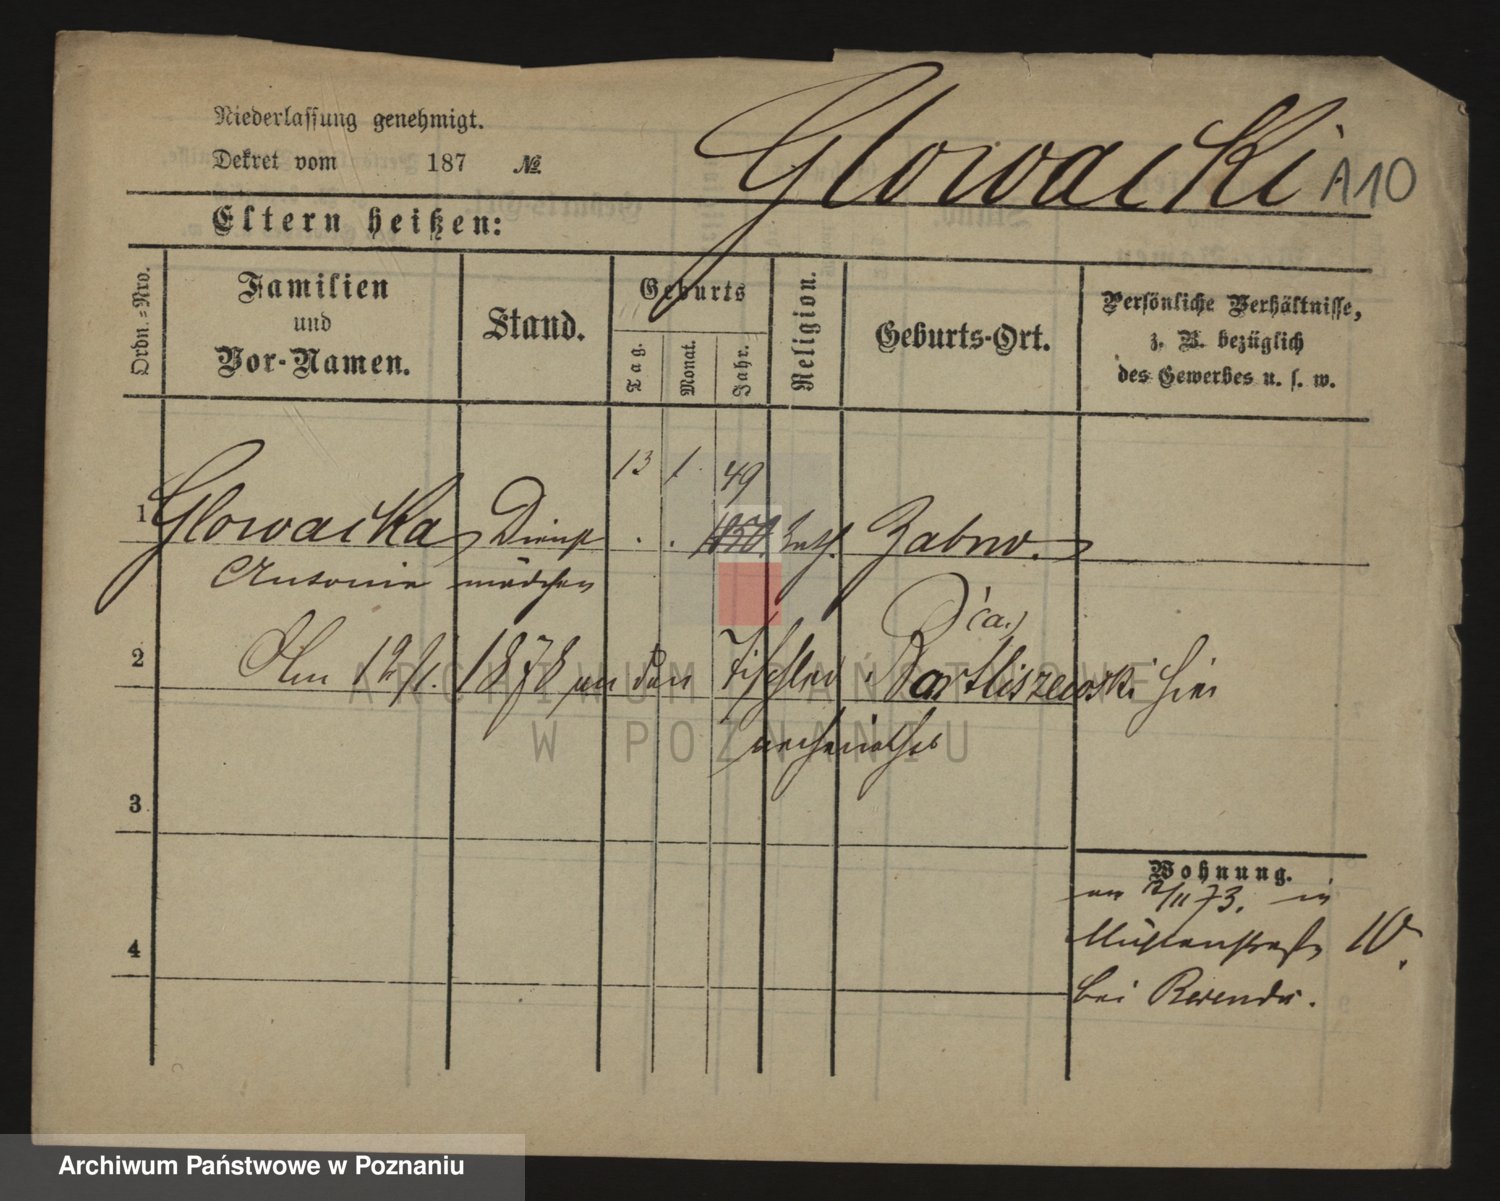 Niederlassung genehmigt.
Dekret vom 187 №
Glowacki A10
Eltern heißen:
Ordn.-Nro.
Familien
und
Vor-Namen.
Stand.
Geburts
Tag.
Monat.
Jahr.
Religion.
Geburts-Ort.
Persönliche Verhältnisse,
z. B. bezüglich
des Gewerbes u. s. w.
13 1. 49
1 Glowacka Dienst . . 1850. kath. Zabno.
Antonie mädchen
2 Am 12/1. 1878 an den Tischler Bartliszewski hier
verheirathet
3
Wohnung.
an 2/11 73. in
Mühlenstraße 10.
4
bei
ARCHIWUM PAŃSTWOWE
W POZNANIU
Archiwum Państwowe w Poznaniu